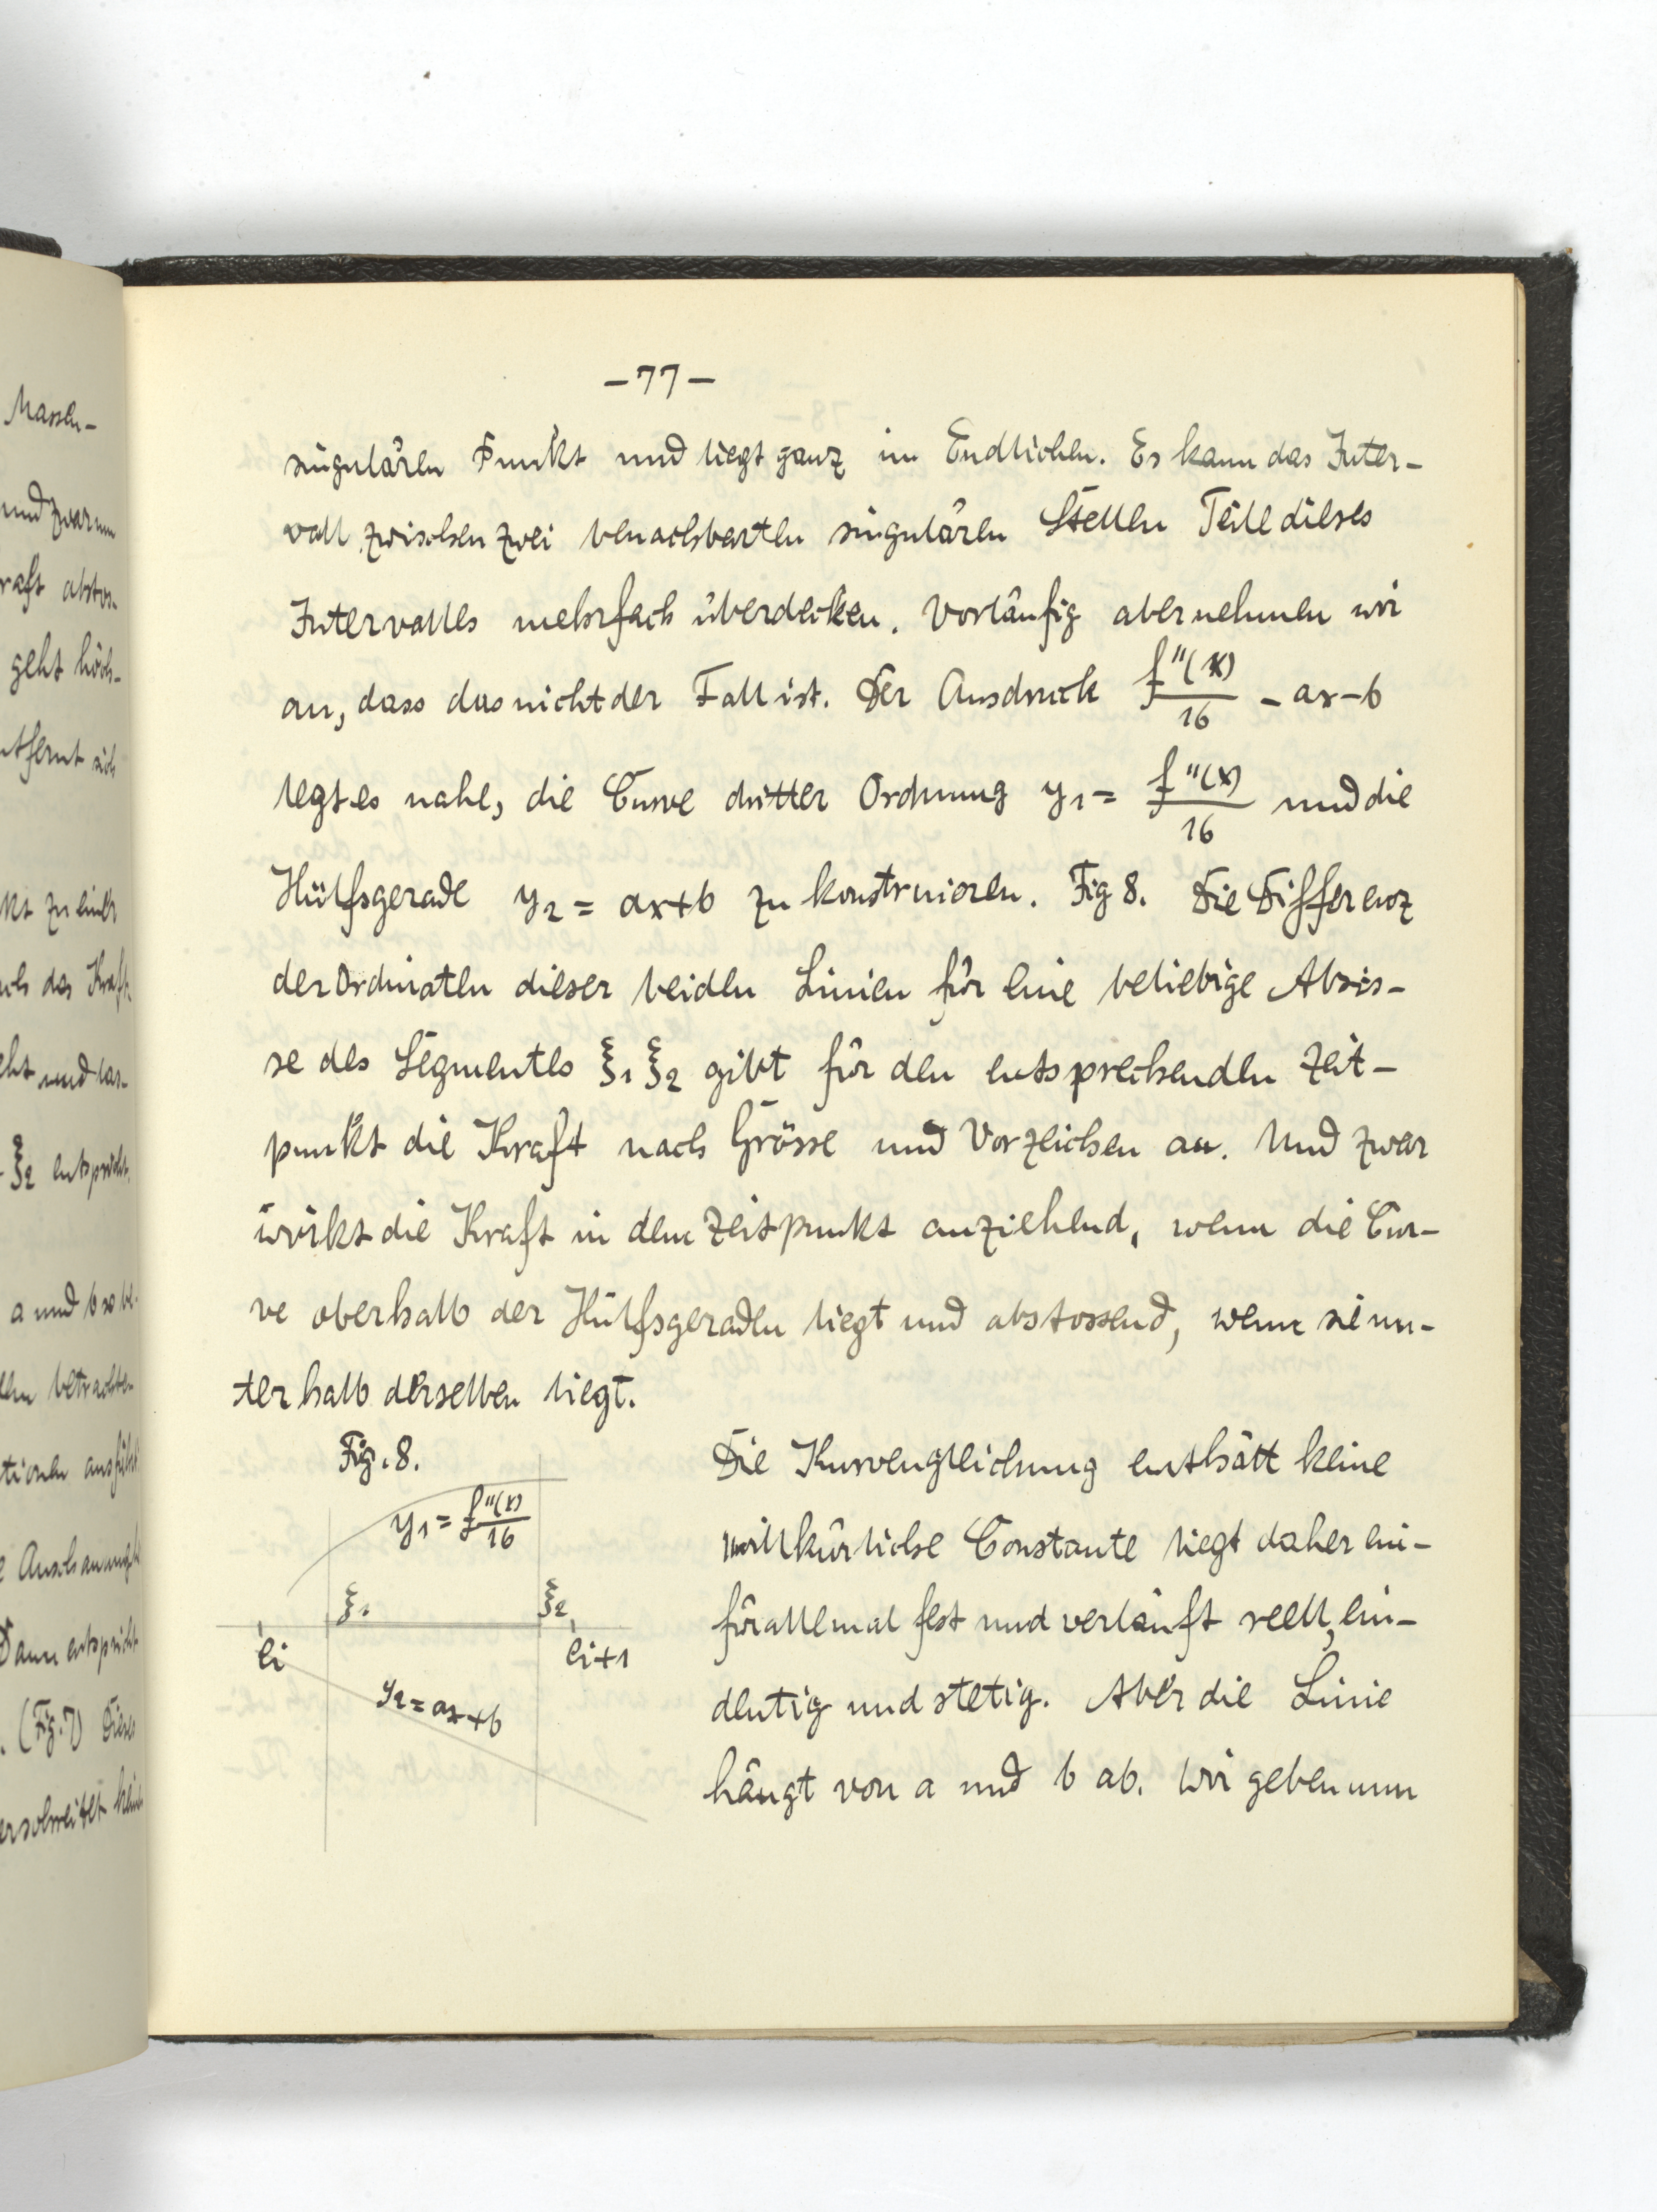 Massen-
und zwar um
geht höch-
kt zu einer
das Kraft-
ξ2 entspricht.
a und b so be-
betrachten
Anschauung
Dann entspricht
(Fig. 7) Dieses
-77-
singulären Punkt und liegt ganz im Endlichen. Es kann das Inter-
vall zwischen zwei benachbarten singulären Stellen Teile dieses
Intervalles mehrfach überdecken. Vorläufig aber nehmen wir
an, dass das nicht der Fall ist. Der Ausdruck f''(x)/16 - ax-b
legt es nahe, die Curve dritter Ordnung y1 = f''(x)/16 und die
Hülfsgerade y2 = ax+b zu konstruieren. Fig 8. Die Differenz
der Ordinaten dieser beiden Linien für eine beliebige Abzis-
se des Segmentes ξ1 ξ2 gibt für den entsprechenden Zeit-
punkt die Kraft nach Grösse und Vorzeichen an. Und zwar
wirkt die Kraft in dem Zeitpunkt anziehend, wenn die Cur-
ve oberhalb der Hülfsgeraden liegt und abstossend, wenn sie un-
terhalb derselben liegt.
Fig. 8.
y1 = f''(x)/16
ξ1 ξ2
ei ei+1
y2 = ax+b
Die Kurvengleichung enthält keine
willkürliche Constante liegt daher ein-
für allemal fest und verläuft reell, ein-
deutig und stetig. Aber die Linie
hängt von a und b ab. Wir geben nun